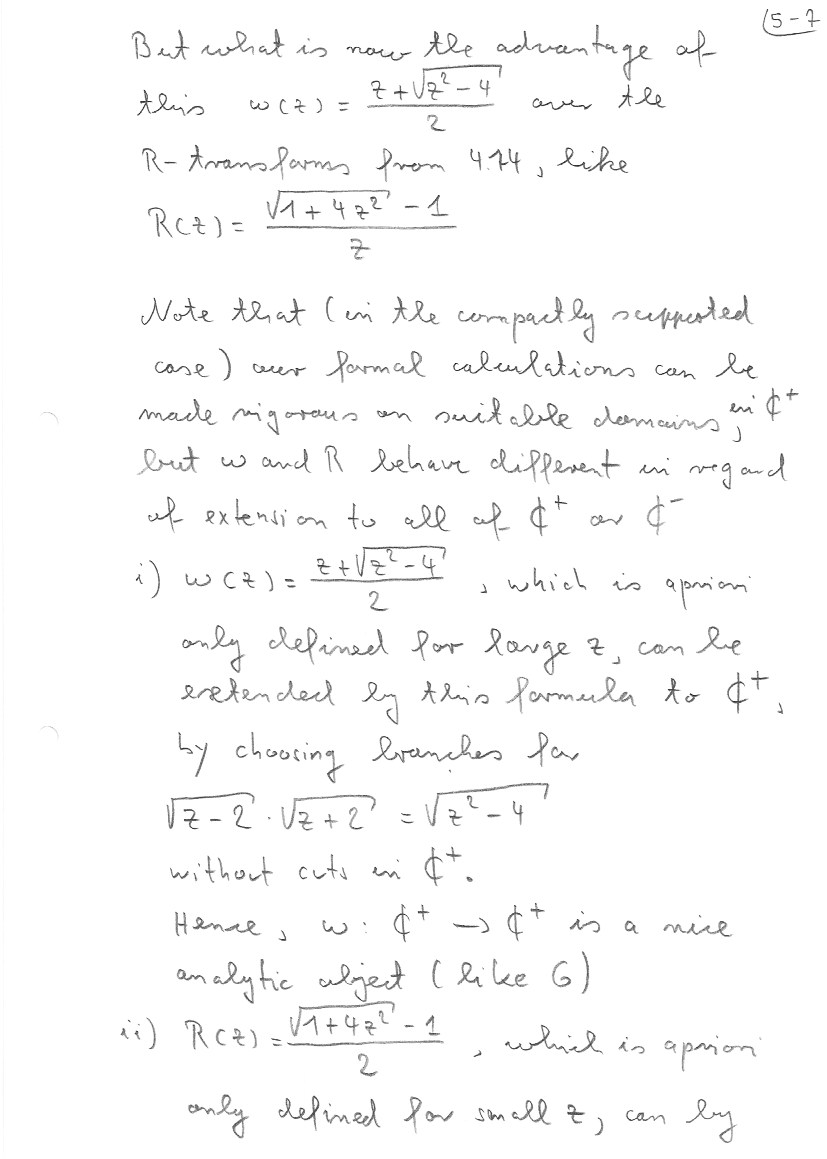 5-7
But what is now the advantage of
this w(z) = \frac{z+\sqrt{z^2-4}}{2} over the
R-transforms from 4.14, like
R(z) = \frac{\sqrt{1+4z^2}-1}{z}
Note that (in the compactly supported
case) our formal calculations can be
made rigorous on suitable domains, in ℂ⁺
but w and R behave different in regard
of extension to all of ℂ⁺ or ℂ⁻
i) w(z) = \frac{z+\sqrt{z^2-4}}{2}, which is apriori
only defined for large z, can be
extended by this formula to ℂ⁺,
by choosing branches for
\sqrt{z-2} · \sqrt{z+2} = \sqrt{z^2-4}
without cuts in ℂ⁺.
Hence, w: ℂ⁺ → ℂ⁺ is a nice
analytic object (like G)
ii) R(z) = \frac{\sqrt{1+4z^2}-1}{2}, which is apriori
only defined for small z, can by